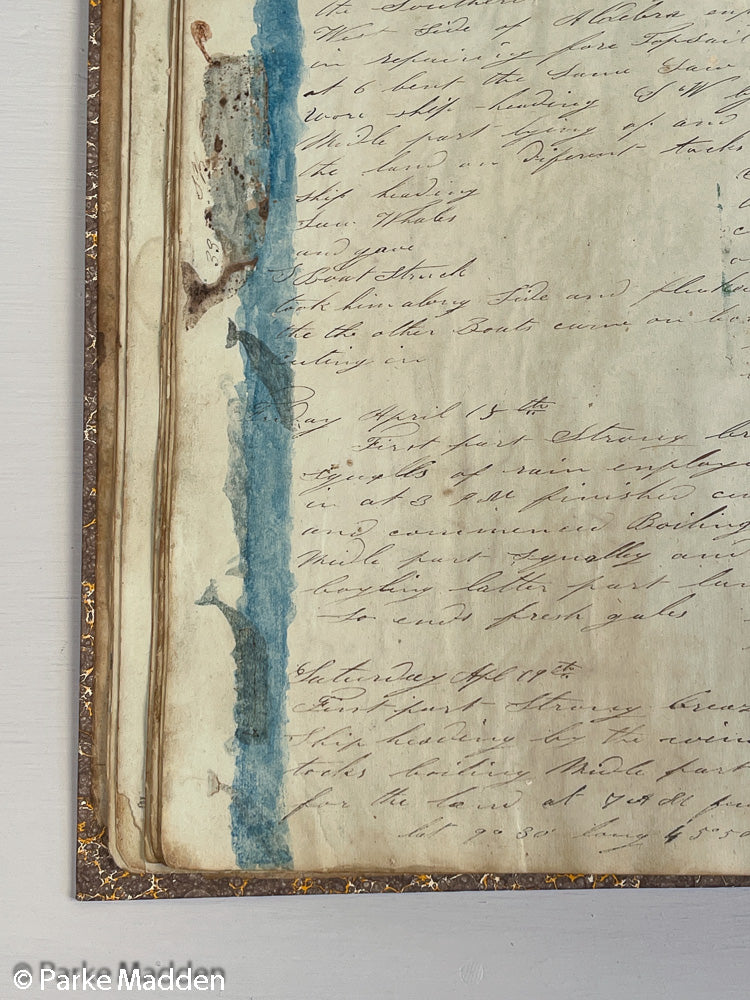 the Southern
West Side of Aldebra
in repairing fore Topsail
at 6 bent the Same Saw
wore ship heading S W by
Midle part lying of and
the land on diferent tacks
ship heading
Saw Whales
and gave
S Boat Struck
took him along Side and
the the other Boats came on
cuting in
Friday April 18th
First part Strong
squalls of rain employed
in at 3 P M finished
and commenced Boiling
Midle part Squally and
boyling latter part
So ends fresh gales
Saturday Apl 19th
First part Strong breaz
Ship heading by the wind
tacks boiling Midle part
for the land at 7 A M
lat 9° 30' long 45° 50
38
© Parke Madden